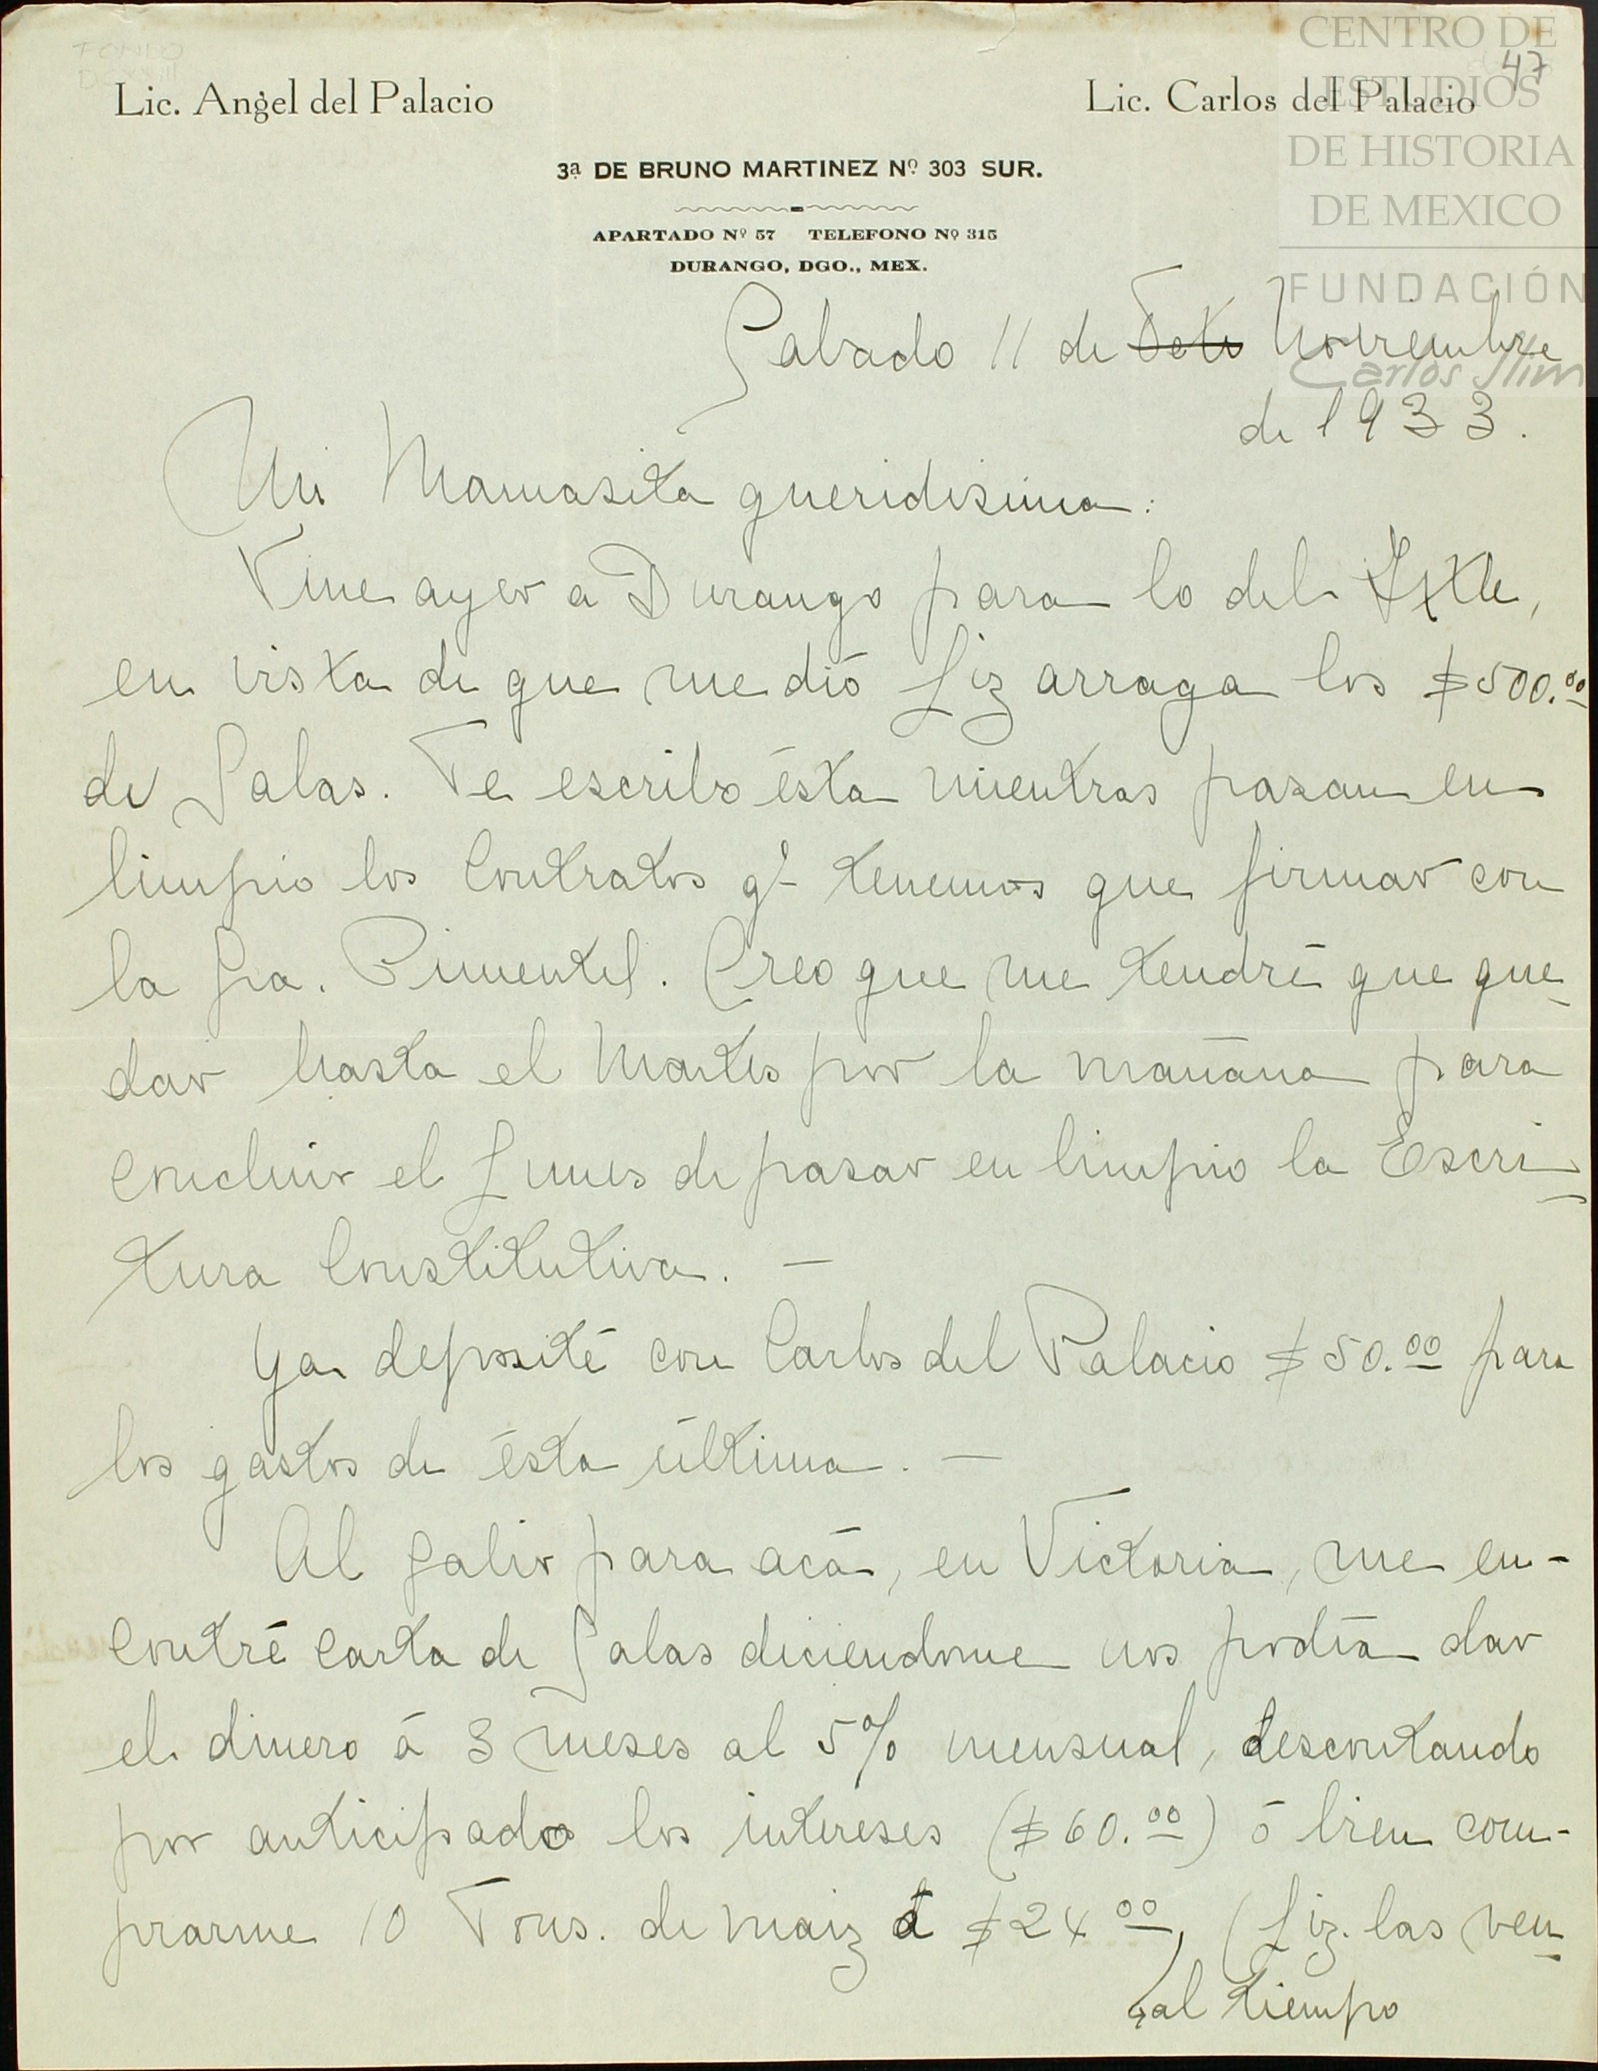 CENTRO DE
ESTUDIOS
DE HISTORIA
DE MEXICO
FUNDACIÓN
Carlos Slim
47
FONDO
Lic. Angel del Palacio
Lic. Carlos del Palacio
3ª DE BRUNO MARTINEZ Nº 303 SUR.
APARTADO Nº 57 TELEFONO Nº 315
DURANGO, DGO., MEX.
Sabado 11 de Noviembre
de 1933.
Mi Mamasita queridisima:
Vine ayer a Durango para lo del Ixtle,
en vista de que me dió Lizarraga los $500.00
de Salas. Te escribo ésta mientras pasan en
limpio los Contratos q' tenemos que firmar con
la Sra. Pimentel. Creo que me tendré que que
dar hasta el Martes por la mañana para
concluir el Lunes de pasar en limpio la Escri
tura Constitutiva. —
Ya deposité con Carlos del Palacio $50.00 para
los gastos de ésta última. —
Al salir para acá, en Victoria, me en-
contré carta de Salas diciendome nos podía dar
el dinero á 3 meses al 5% mensual, descontando
por anticipado los intereses ($60.00) ó bien com-
prarme 10 Tons. de maiz á $24.00, (Liz. las ven
al tiempo